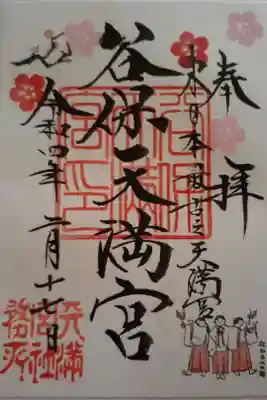 奉拝
東日本最古之天満宮
谷保天満宮
令和四年二月十七日
天満
宮社
務所